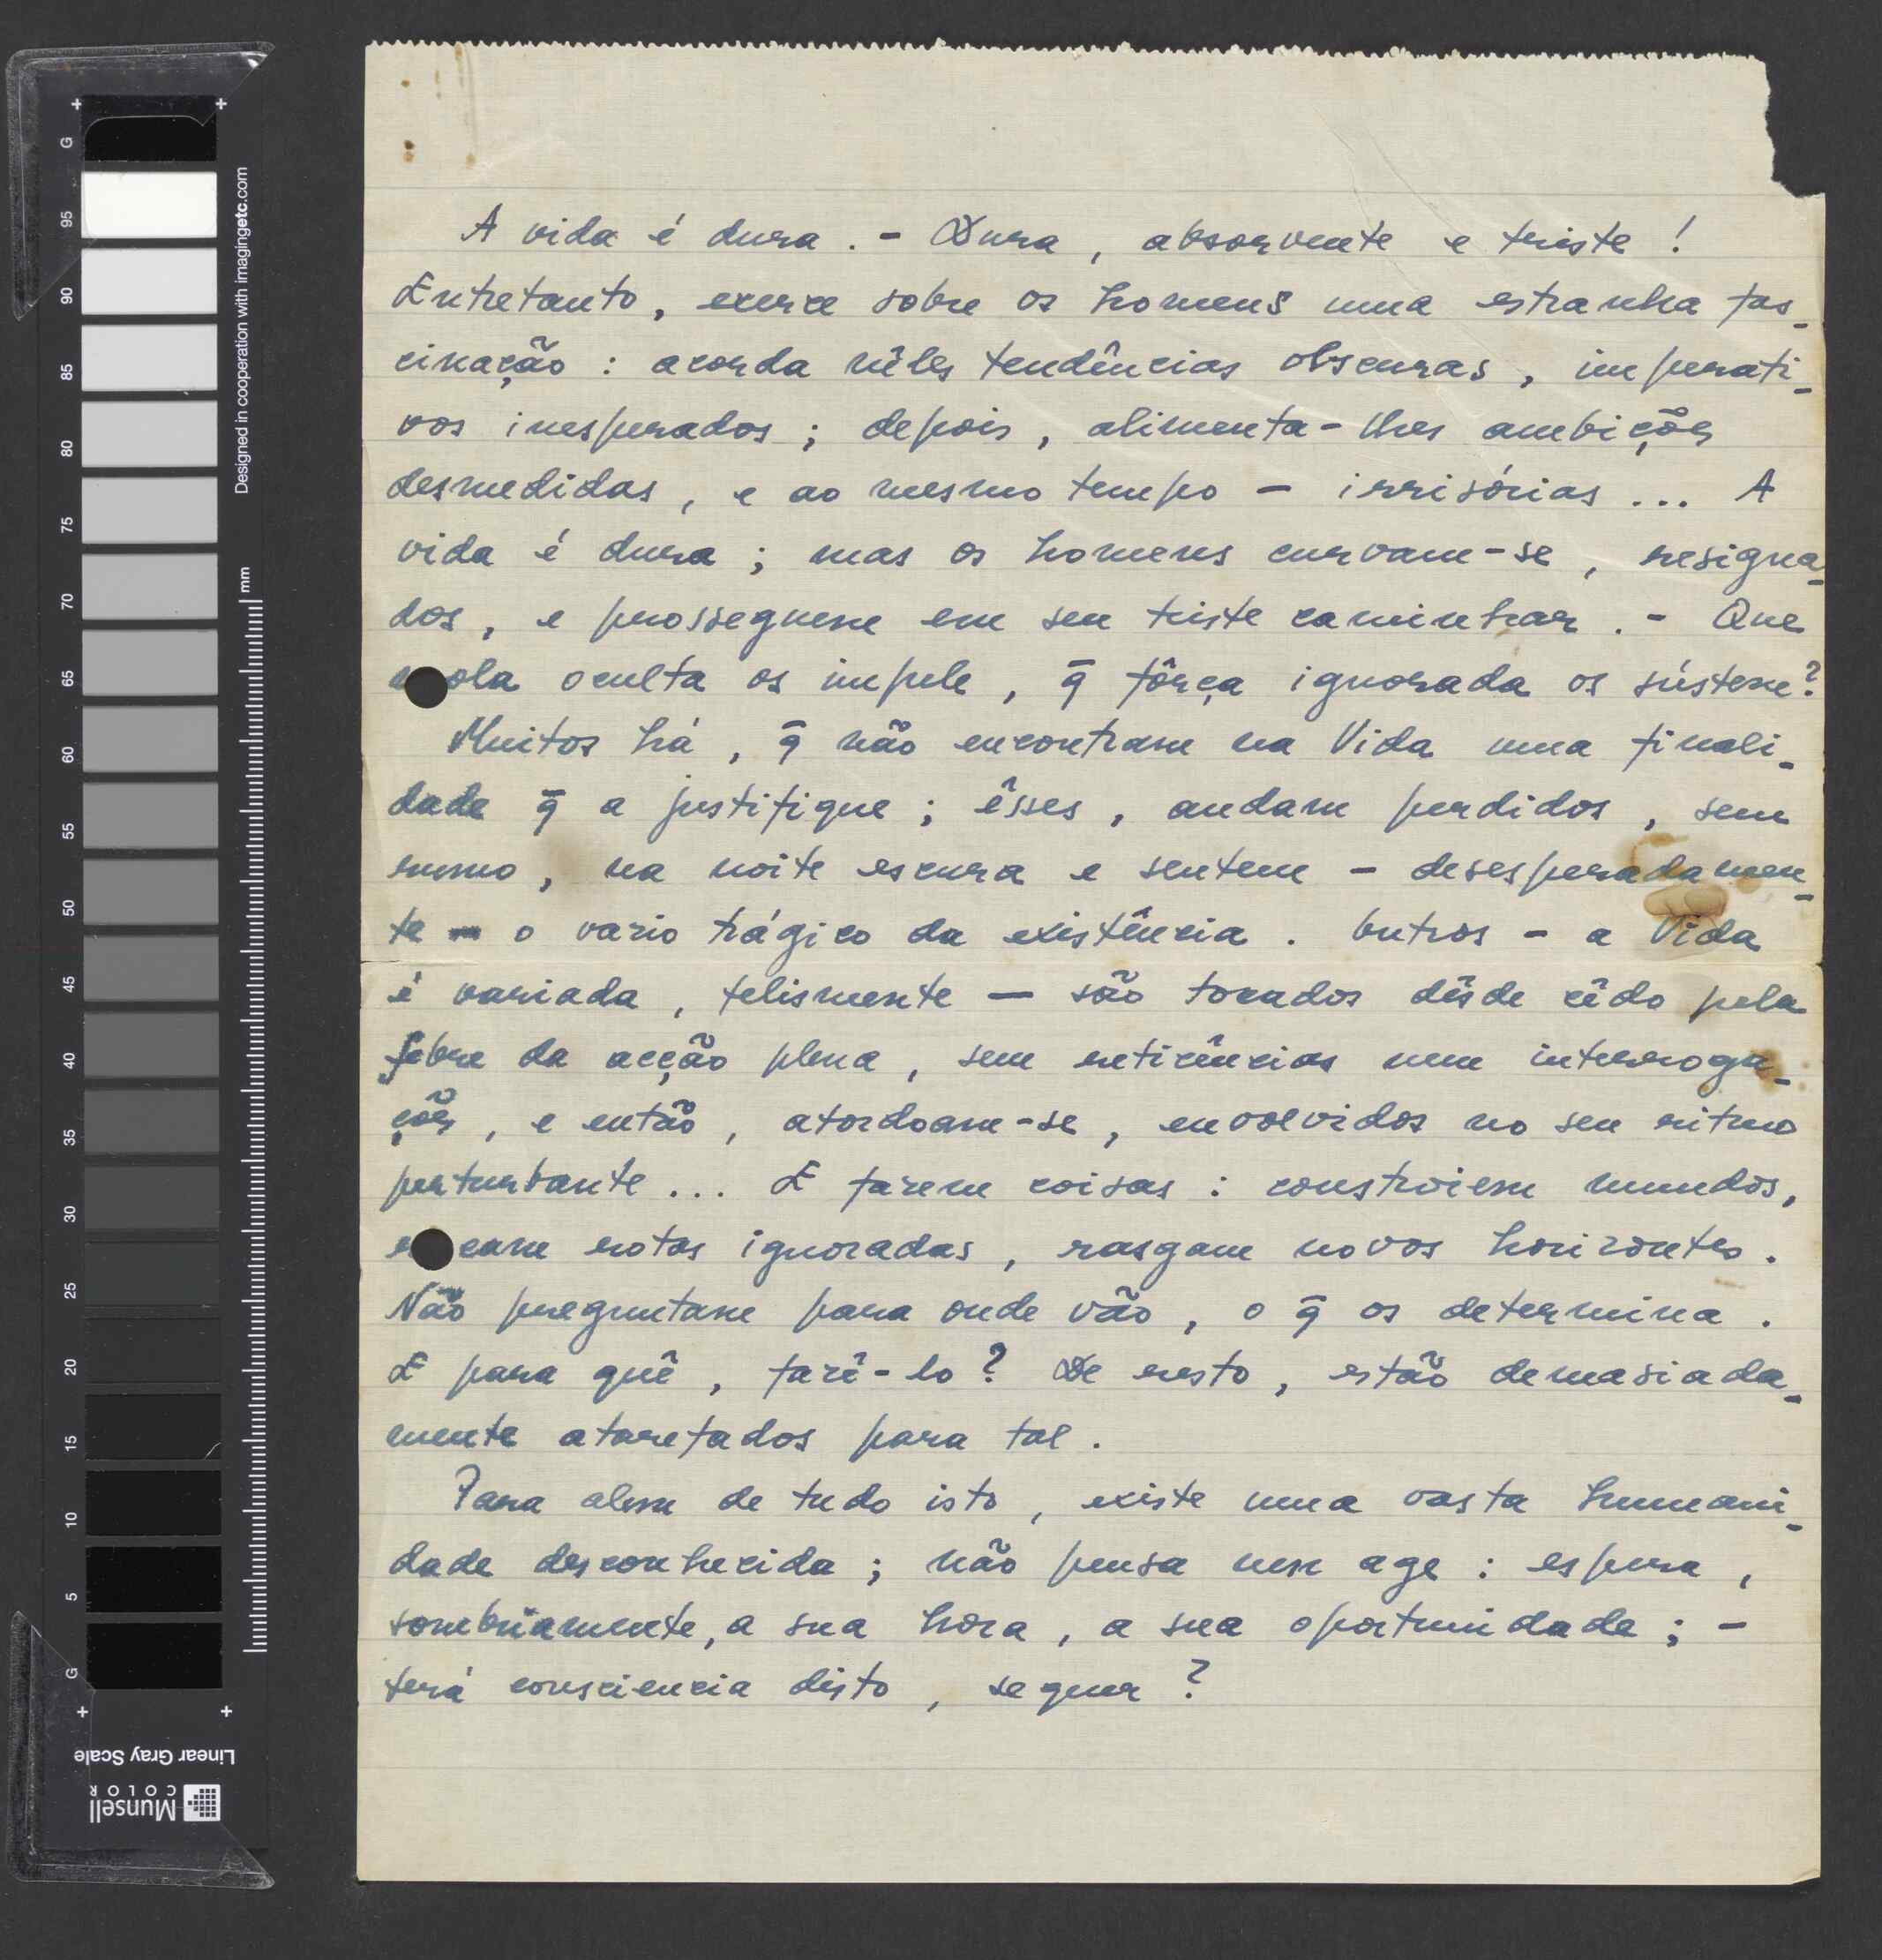 A vida é dura. - Dura, absorvente e triste!
Entretanto, exerce sobre os homens uma estranha fas-
cinação: acorda nêles tendências obscuras, imperati-
vos inesperados; depois, alimenta-lhes ambições
desmedidas, e ao mesmo tempo - irrisórias... A
vida é dura; mas os homens curvam-se, resigna-
dos, e prosseguem em seu triste caminhar. - Que
mola oculta os impele, q̄ fôrça ignorada os sústem?
Muitos há, q̄ não encontram na Vida uma finali-
dade q̄ a justifique; êsses, andam perdidos, sem
rumo, na noite escura e sentem - desesperadamen-
te - o vazio trágico da existência. Outros - a Vida
é variada, felismente - são tocados dêsde cêdo pela
febre da acção plena, sem reticências nem interroga-
ções, e então, atordoam-se, envolvidos no seu ritmo
perturbante... E fazem coisas: constroiem mundos,
cam rotas ignoradas, rasgam novos horizontes.
Não preguntam para onde vão, o q̄ os determina.
E para quê, fazê-lo? De resto, estão demasiada-
mente atarefados para tal.
Para alem de tudo isto, existe uma vasta humani-
dade desconhecida; não pensa nem age: espera,
sombriamente, a sua hora, a sua oportunidade; -
terá consciencia disto, sequer?
G
95
90
85
80
75
70
65
60
55
50
45
40
35
30
25
20
15
10
5
G
mm
Designed in cooperation with imagingetc.com
Linear Gray Scale
Munsell
COLOR